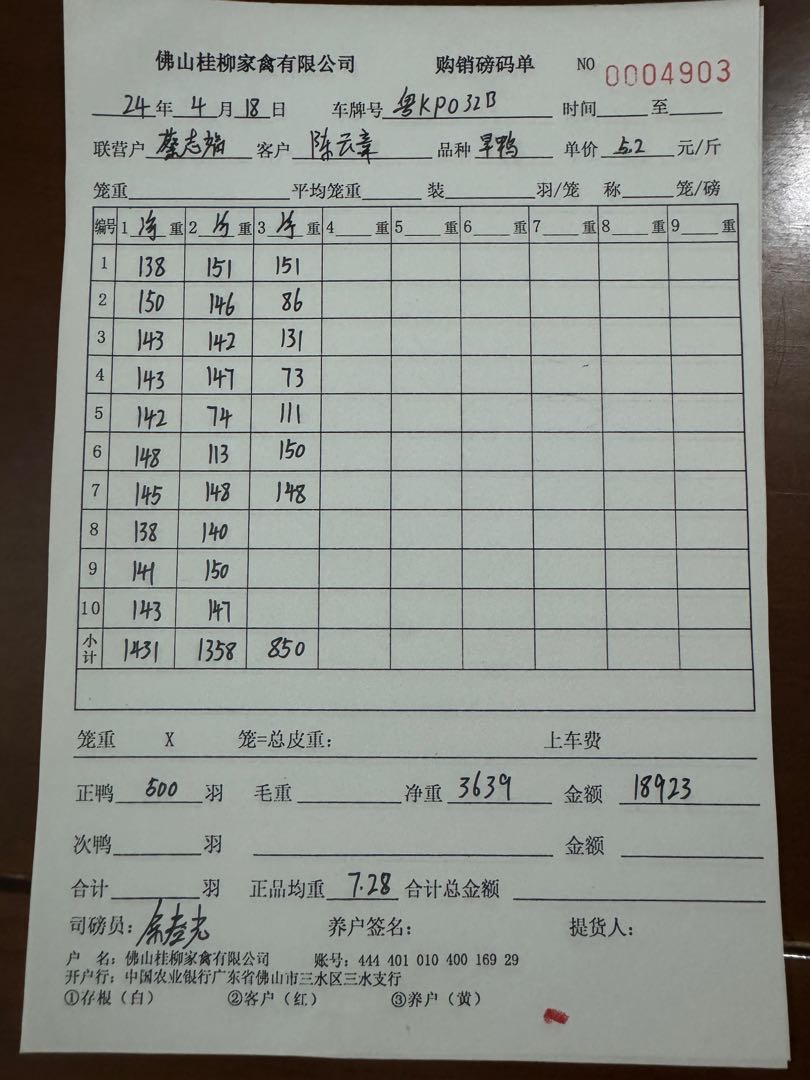 佛山桂柳家禽有限公司 购销磅码单 NO 0004903
24年 4月 18日 车牌号 粤KP032B 时间 至
联营户 蔡志端 客户 陈云章 品种 旱鸭 单价 5.2 元/斤
笼重 平均笼重 装 羽/笼 称 笼/磅
编号 1 净 重 2 净 重 3 净 重 4 重 5 重 6 重 7 重 8 重 9 重
1 138 151 151
2 150 146 86
3 143 142 131
4 143 147 73
5 142 74 111
6 148 113 150
7 145 148 148
8 138 140
9 141 150
10 143 147
小计 1431 1358 850
笼重 X 笼=总皮重: 上车费
正鸭 500 羽 毛重 净重 3639 金额 18923
次鸭 羽 金额
合计 羽 正品均重 7.28 合计总金额
司磅员: 养户签名: 提货人:
户 名: 佛山桂柳家禽有限公司 账号: 444 401 010 400 169 29
开户行: 中国农业银行广东省佛山市三水区三水支行
①存根(白) ②客户(红) ③养户(黄)